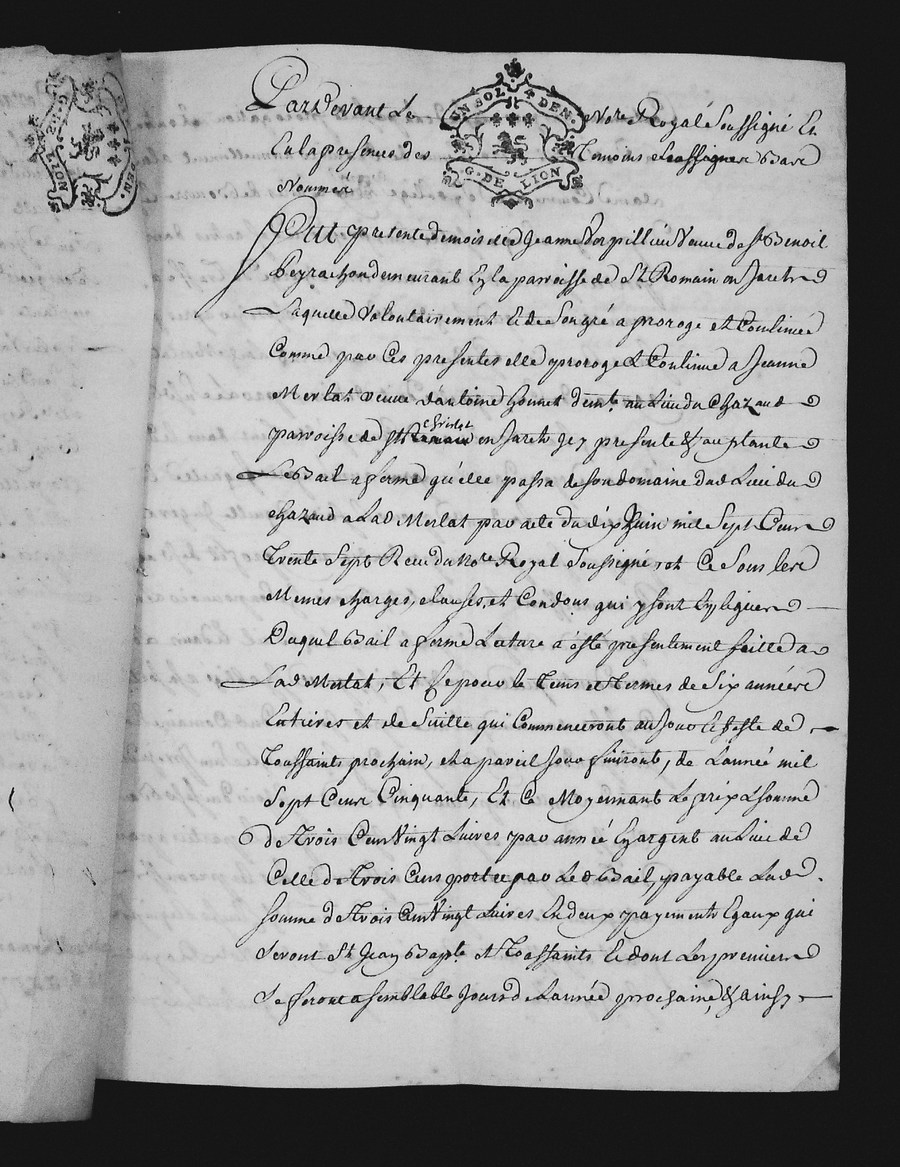 UN SOL 4 DEN.
G. DE LION
UN SOL 4 DEN.
G. DE LION
Pardevant Le Notre Royal soussigné Et
En la presence des Temoins soussignes Bas
Nommés
fut presente demoiselle Jeanne Veuve de sr Benoit
Peyrachon demeurant En la parroisse de St Romain en Jarets
Laquelle Volontairement Et de Son gré a proroge et Continué
Comme par Ces presentes elle proroge Et Continue a Jeanne
Merlat veuve d'antoine honnet demt. au Lieu du Chazaud
parroisse de St Christot en Jarets Jcy presente & acceptante
Le Bail a ferme qu'elle passa de son domaine dud Lieu du
Chazaud a Lad Merlat par acte du dix Juin mil Sept Cens
Trente Sept Recu du Notre Royal Soussigné et Ce Sous les
Memes charges, clauses, et Condons qui y sont Expliquees
Duquel Bail a ferme Lecture a été presentement faitte a
Lad Merlat, Et Ce pour le Tems et Termes de Six années
Entieres et de Suitte qui Commenceront au jour & feste de
Toussaints prochain, et a pareil jour finiront, de L'année mil
Sept Cens Cinquante, Et Ce Moyennant Le prix & somme
de Trois Cens Vingt Livres par année En argent au Lieu de
Celle de Trois Cens portée par Led Bail, payable Lad
somme de Trois Cens Vingt Livres En deux payements Egaux qui
Seront St Jean Bapte. et Toussaints Et dont Les premiers
Se feront a semblable Jours de L'année prochaine, & ainsy